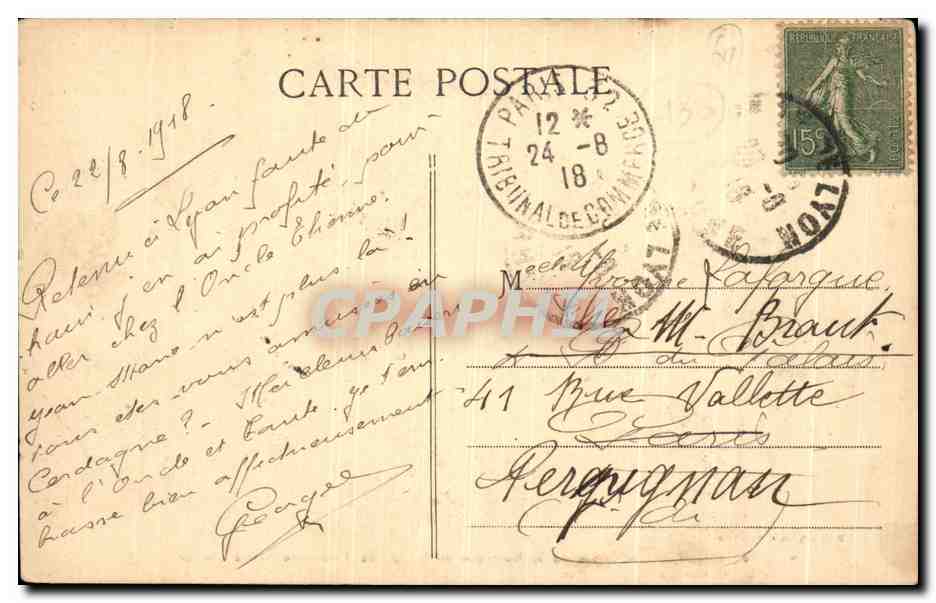 CARTE POSTALE
Ce 22/8-1918
Retenu à Lyon faute de
train, j'en ai profité pour
aller chez l'Oncle Etienne.
Jean Marie n'est plus là!
vous êtes vous amusés en
Cerdagne? - Meilleurs baisers
à l'Oncle et Tante. Je t'em
brasse bien affectueusement
Georges
REPUBLIQUE FRANÇAISE
15c
PARIS
12 *
24 -8
18
TRIBUNAL DE COMMERCE
LYON
LYON
CPAPHIL
M elle Yvonne Lafargue
Chez M. Braut.
du Palais
41 Rue Vallette
Paris
Perpignan